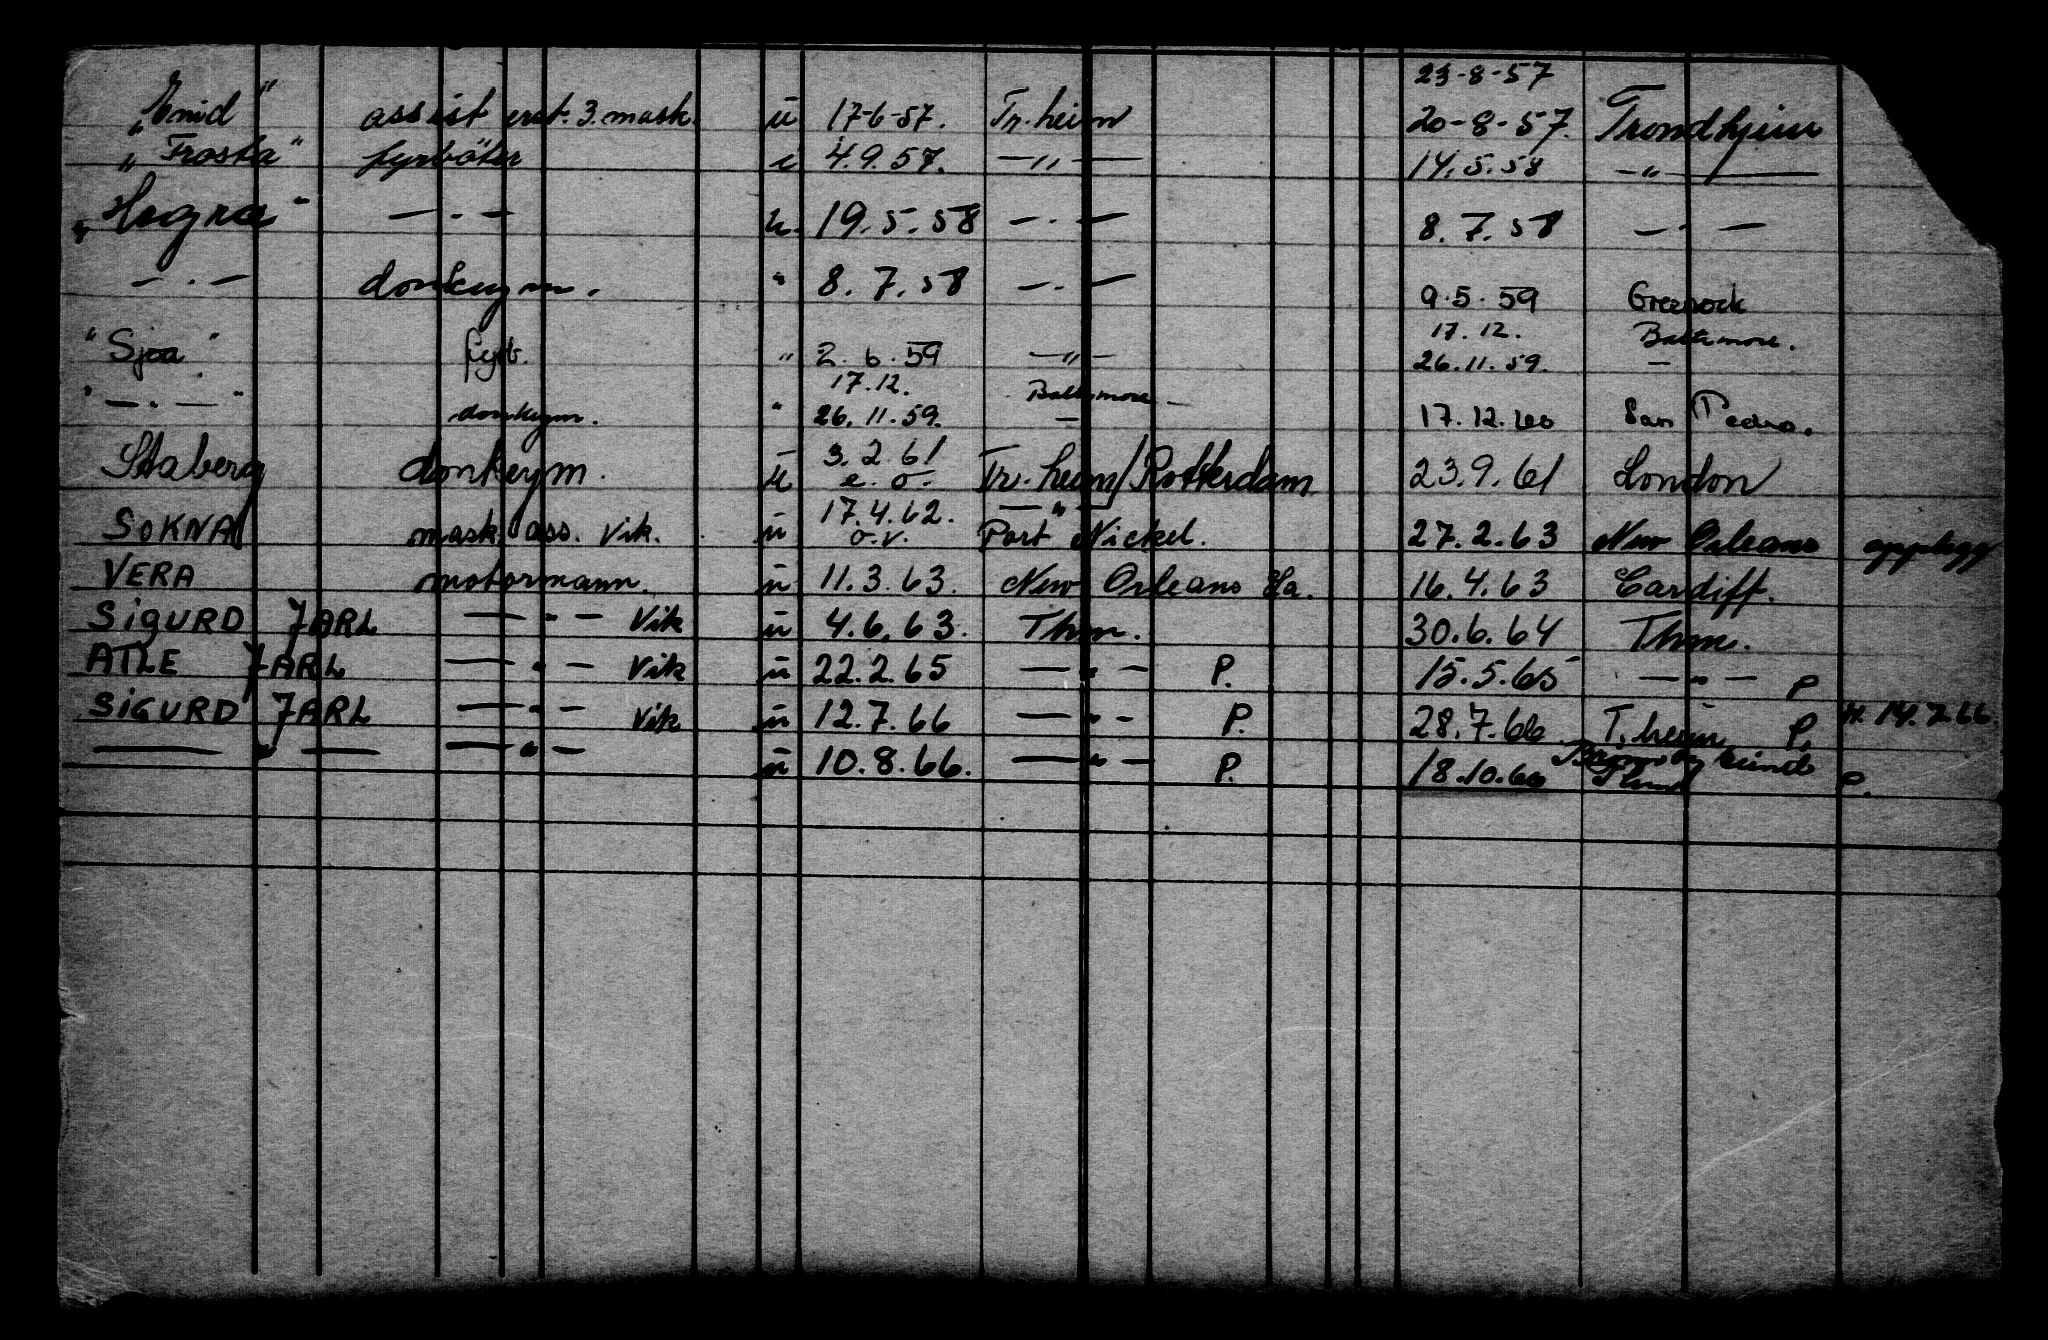 23-8-57
„Enid" assist erst. 3. mask. u 17-6-57. Tr.heim 20-8-57. Trondhjem
„Frosta" fyrbøter u 4.9.57. —„— 14.5.58 —„—
„Hegra" — . — u. 19.5.58 — . — 8.7.58 — . —
— . — donkeym. " 8.7.58 — . — 9.5.59 Greenock
17.12. Baltimore.
"Sjoa" fyrb. " 2.6.59 —„— 26.11.59. —
17.12. Baltimore
"— . —" donkeym. " 26.11.59. — 17.12.60 San Pedro.
3.2.61
Staberg donkeym. u e.o. Tr.heim/Rotterdam 23.9.61 London
17.4.62. —„—
SOKNA mask. ass. Vik. u o.v. Port Nickel. 27.2.63 New Orleans opplegg
VERA motormann. u 11.3.63. New Orleans La. 16.4.63 Cardiff.
SIGURD JARL —„— Vik u 4.6.63. Thm. 30.6.64 Thm.
ATLE JARL —„— Vik u 22.2.65 —„— P. 15.5.65 —„— P
SIGURD JARL —„— Vik u 12.7.66 —„— P. 28.7.66 T.heim P. 14.7.66.
—„— —„— u 10.8.66. —„— P. 18.10.66 P.